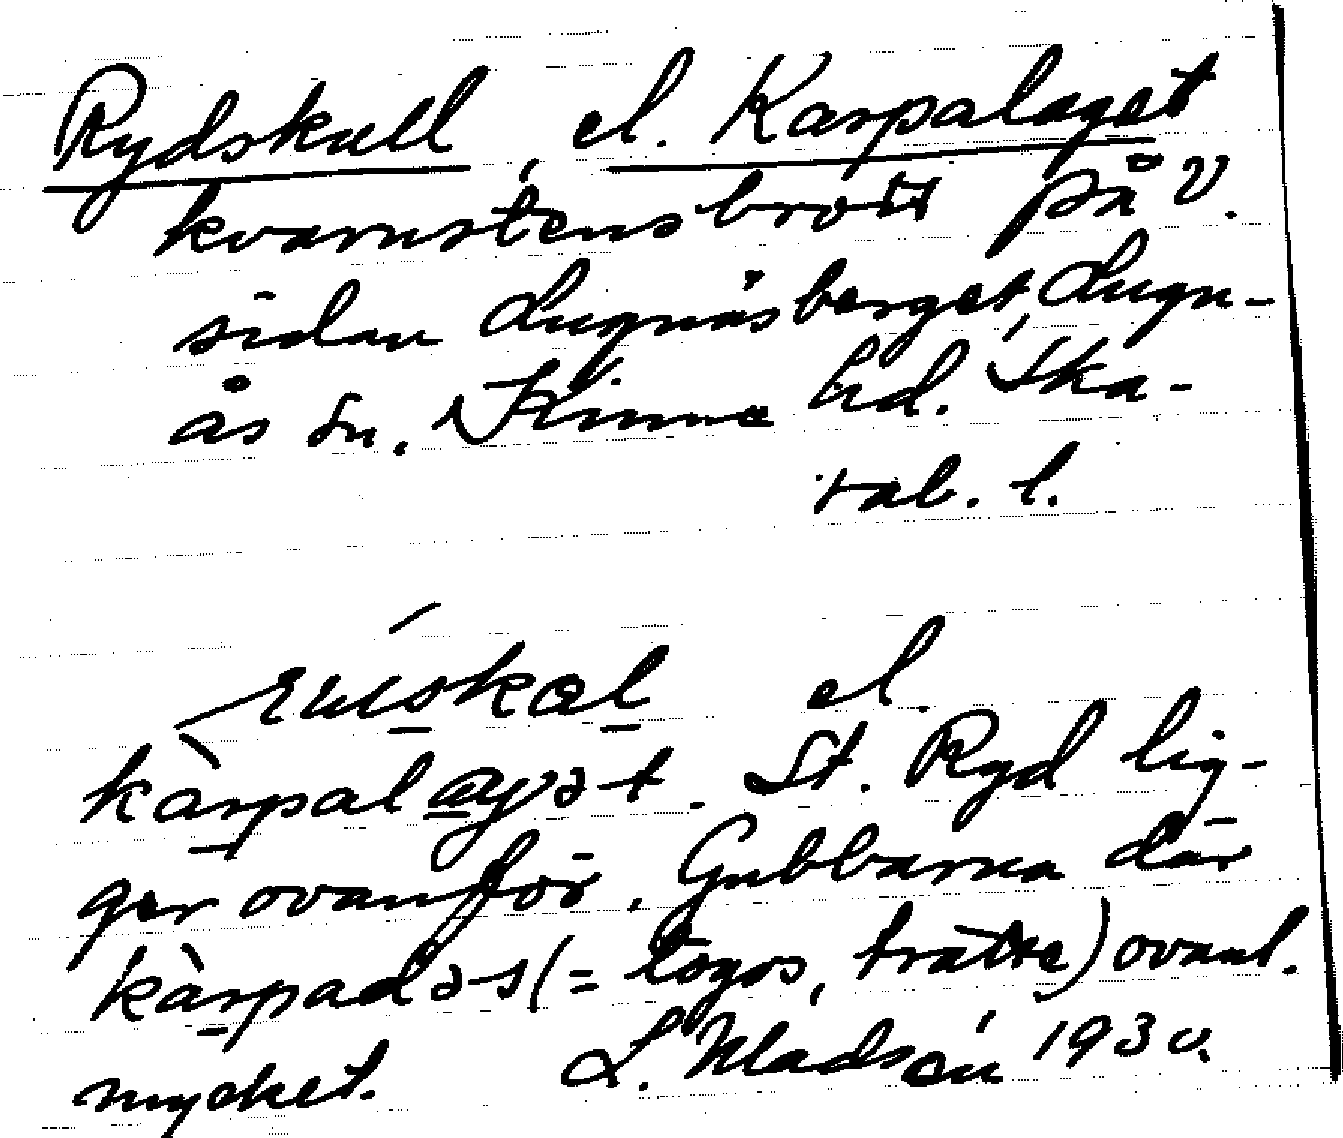 Rydskull, el. Karpalaget
kvarnstensbrott på v.
sidan Lugnåsberget, Lugn-
ås sn. Kinne hd. Ska-
rab. l.
el.
kàrpalaγət. St. Ryd lig-
ger ovanför. Gubbarna där
kàrpadəs (= togos, trätte) ovanl.
mycket. L. Madsén 1930.